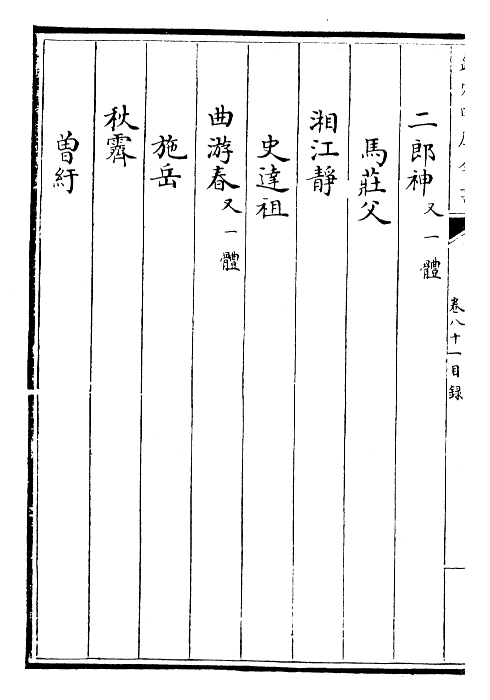 二郎神又一體
馬莊父
湘江靜
史達祖
曲游春又一體
施岳
秋霽
曾紆
卷八十一目録